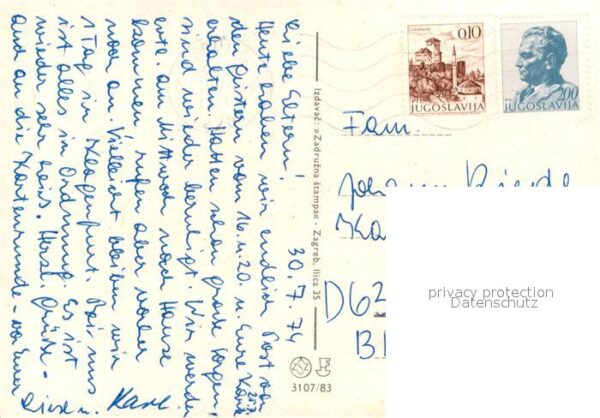 30. 7. 74
Liebe Eltern!
Heute haben wir endlich Post von
den Gittern vom 16. u. 20. u. Eure Karte 25.7.
erhalten. Hatten schon große Sorgen,
sind wieder beruhigt. Wir werden
evtl. am Mittwoch nach Hause
kommen, rufen aber vorher
noch an. Vielleicht bleiben wir
1 Tag in Klagenfurt. Bei uns
ist alles in Ordnung. Es ist
wieder sehr heiß. Herzl. Grüße -
auch an die Kartenrunde - von Euren
Liesl u. Karl
Izdavač: »Zadružna štampa« - Zagreb, Ilica 35
3107/83
GRADAČAC
0,10
PTT
JUGOSLAVIJA
2,00
JUGOSLAVIJA
Fam.
Johann
Ka
D62
B
privacy protection
Datenschutz